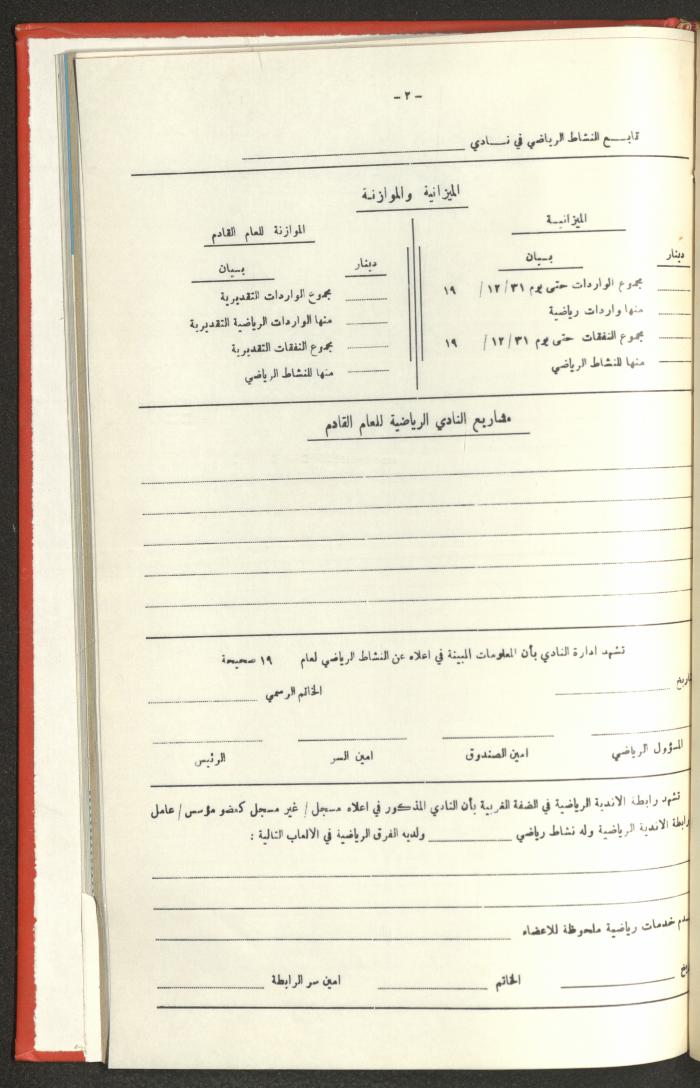 - ٢ -
تابع النشاط الرياضي في نادي
الميزانية والموازنة
الميزانية
دينار بيان
مجموع الواردات حتى يوم ٣١ /١٢ / ١٩
منها واردات رياضية
مجموع النفقات حتى يوم ٣١ /١٢ / ١٩
منها للنشاط الرياضي
الموازنة للعام القادم
دينار بيان
مجموع الواردات التقديرية
منها الواردات الرياضية التقديرية
مجموع النفقات التقديرية
منها للنشاط الرياضي
مشاريع النادي الرياضية للعام القادم
تشهد ادارة النادي بأن المعلومات المبينة في اعلاه عن النشاط الرياضي لعام ١٩ صحيحة
الخاتم الرسمي
المسؤول الرياضي امين الصندوق امين السر الرئيس
تشهد رابطة الاندية الرياضية في الضفة الغربية بأن النادي المذكور في اعلاه مسجل / غير مسجل كعضو مؤسس / عامل
رابطة الاندية الرياضية وله نشاط رياضي ولديه الفرق الرياضية في الالعاب التالية :
خدمات رياضية ملحوظة للاعضاء
الخاتم امين سر الرابطة